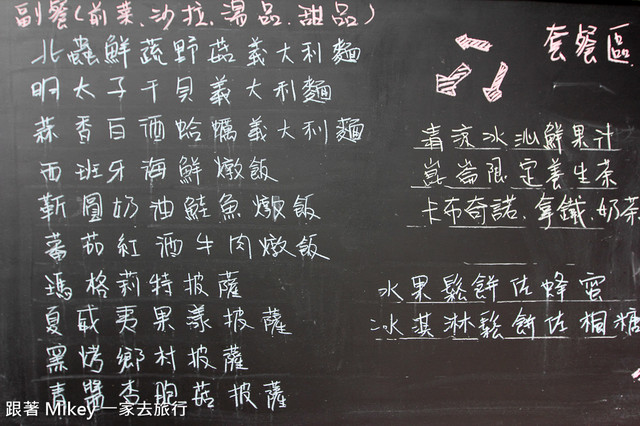 副餐(前菜、沙拉、湯品、甜品)
套餐區
北蟲鮮蔬野菇義大利麵
明太子干貝義大利麵
蒜香白酒蛤蠣義大利麵
西班牙海鮮燉飯
圓奶油鮭魚燉飯
蕃茄紅酒牛肉燉飯
瑪格莉特披薩
夏威夷果漾披薩
黑烤鄉村披薩
青醬杏鮑菇披薩
清涼冰沁鮮果汁
崑崙限定養生茶
卡布奇諾、拿鐵、奶茶
水果鬆餅佐蜂蜜
冰淇淋鬆餅佐楓糖
跟著 Mikey 一家去旅行